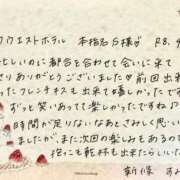 クウエストホテル 本指名G様 R8.
忙しいのに都合を合わせて会いに来て
ださりありがとうございました 前回出来
ったフレンチキスも出来て嬉しかったです
ずっと笑いあって楽しかったですね
時間が足りないなあとさみしく思い
ましたが、また次回の楽しみもあるので
後に乾杯も出来たらいい
新横 すみ